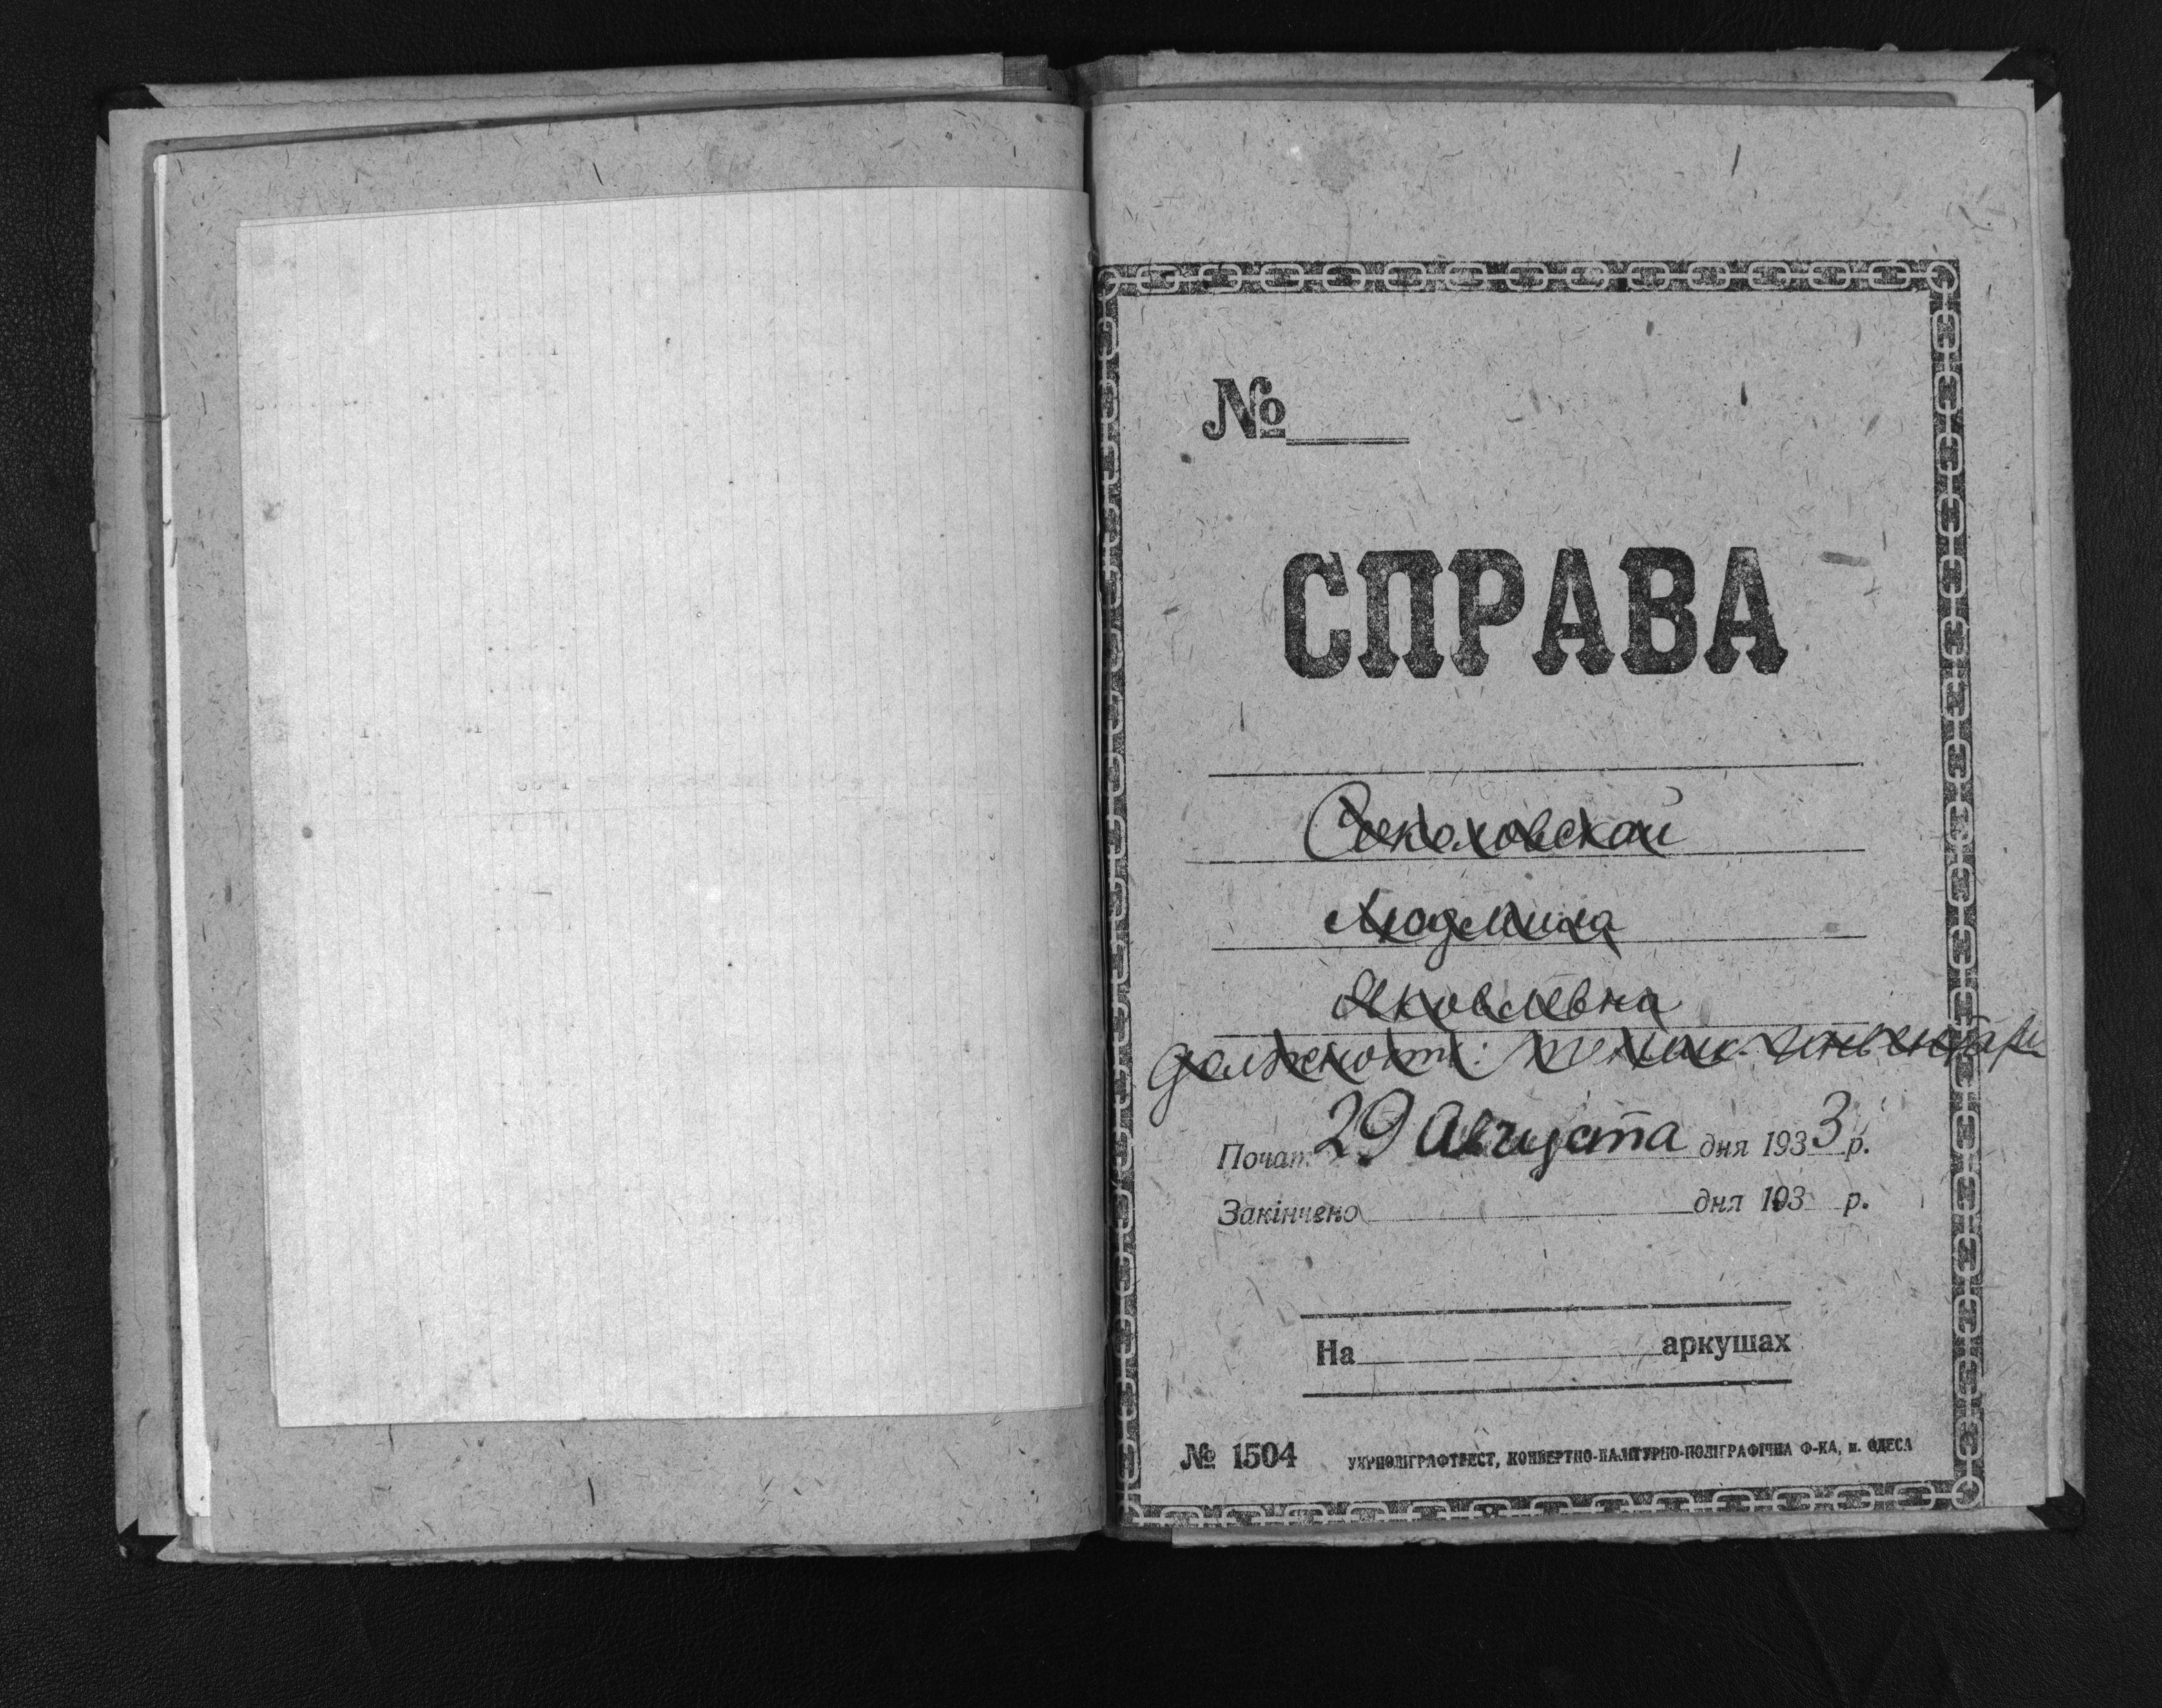 №
СПРАВА
Соколовской
Людмила
Яковлевна
должность: техник.
Почат 29 Августа дня 1933 р.
Закінчено дня 193 р.
На аркушах
№ 1504 УКРПОЛІГРАФТРЕСТ, КОНВЕРТНО-ПАЛІТУРНО-ПОЛІГРАФІЧНА Ф-КА, м. ОДЕСА